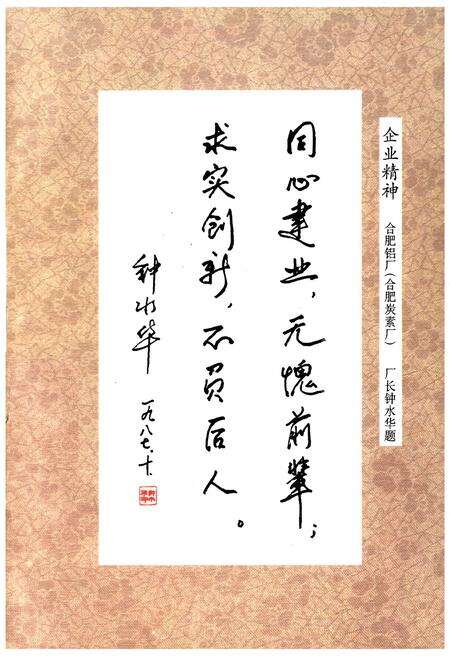 企业精神 合肥铝厂(合肥炭素厂) 厂长钟水华题
同心建业,无愧前辈;
求实创新,不负后人。
钟水华
一九八七.十.